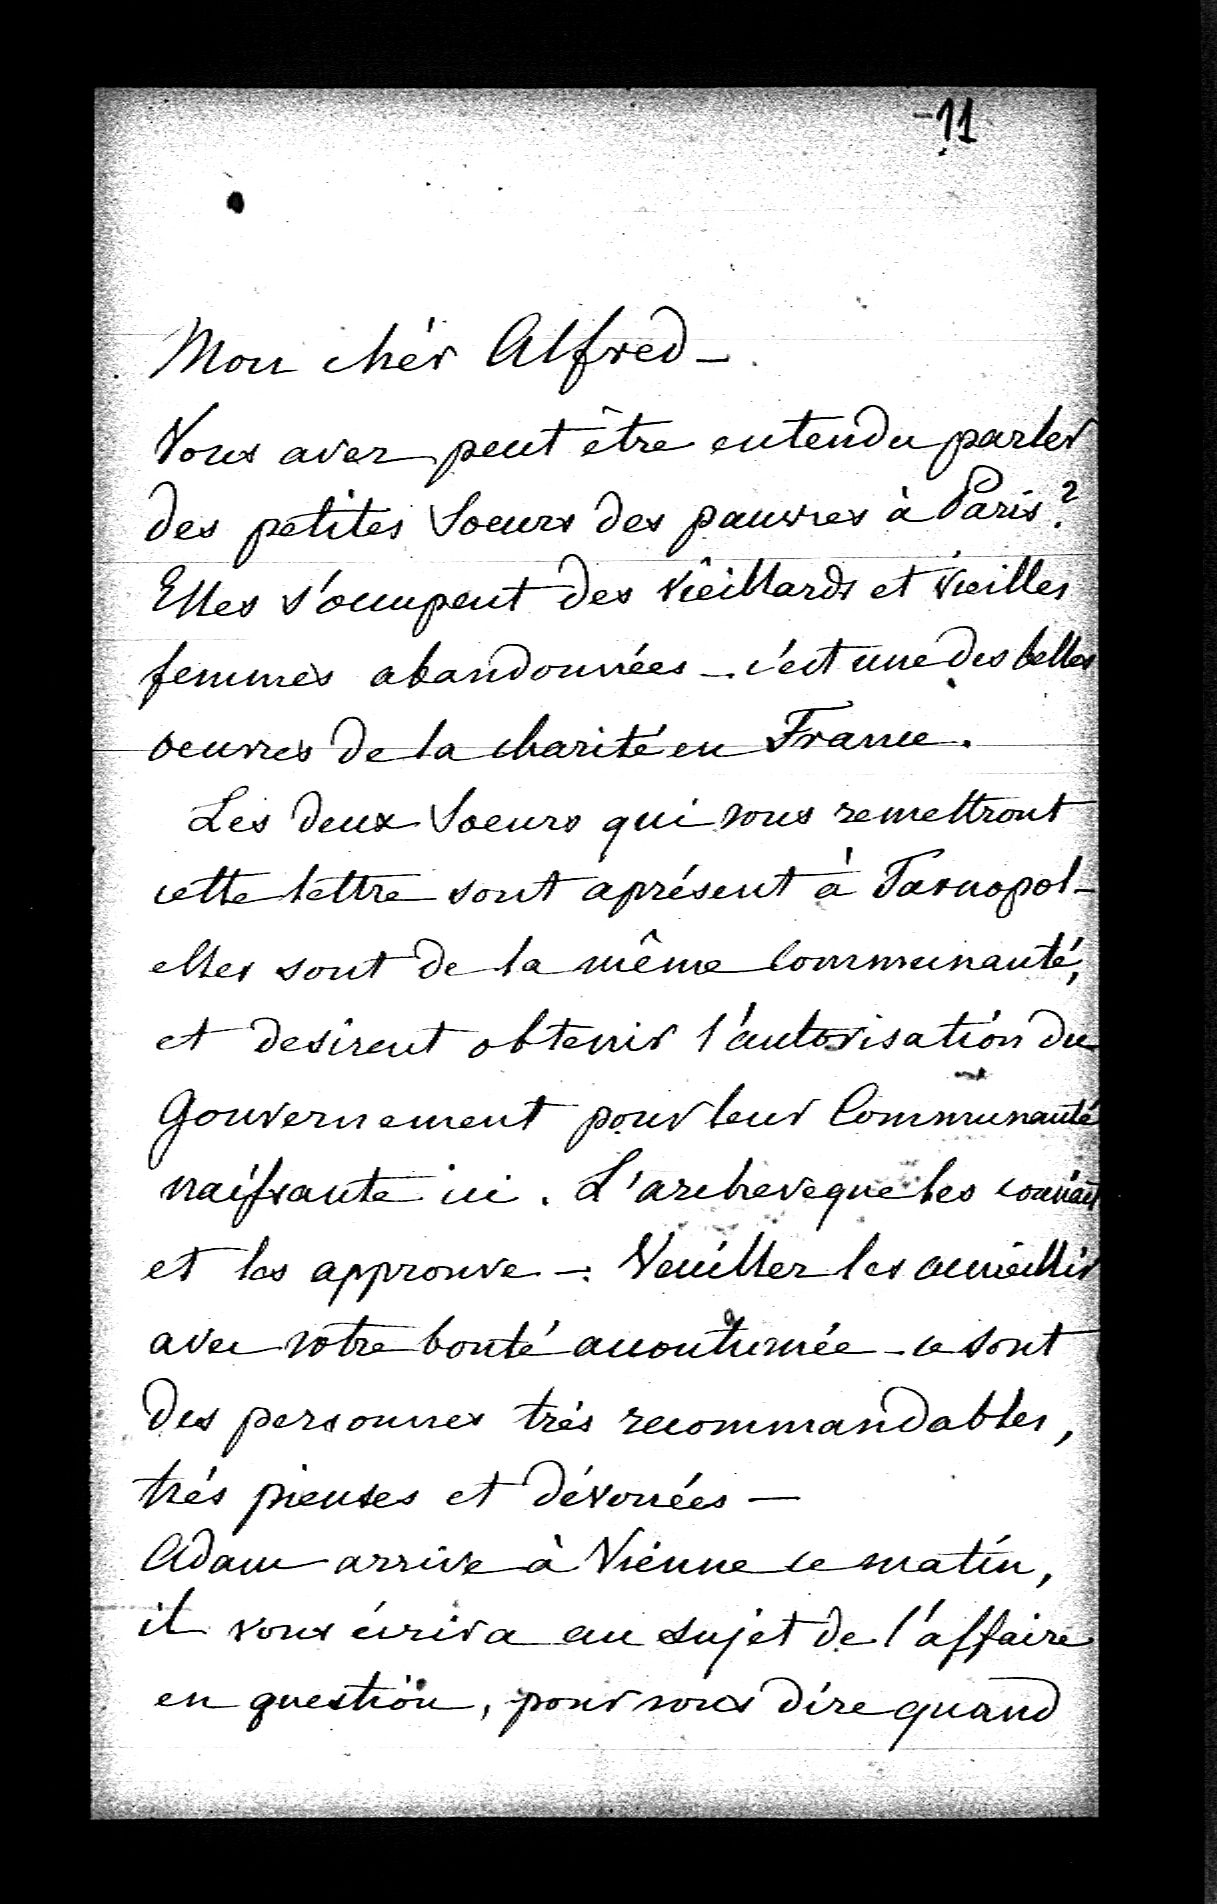 -11
Mon chér Alfred -
Vous avez peut être entendu parler
des petites Soeurs des pauvres à Paris?
Elles s'occupent des vieillards et vieilles
femmes abandonnées - c'est une des belles
oeuvres de la charité en France.
Les deux Soeurs qui vous remettront
cette lettre sont aprésent à Tarnopol -
elles sont de la même Communauté,
et desirent obtenir l'autorisation du
Gouvernement pour leur Communauté
naissante ici. L'archeveque les connait
et les approuve -. Veuillez les accueillir
avec votre bonté accoutumée - ce sont
des personnes trés recommandables,
trés pieuses et dévouées -
Adam arrive à Vienne ce matin,
il vous écrira au sujet de l'affaire
en question, pour vous dire quand